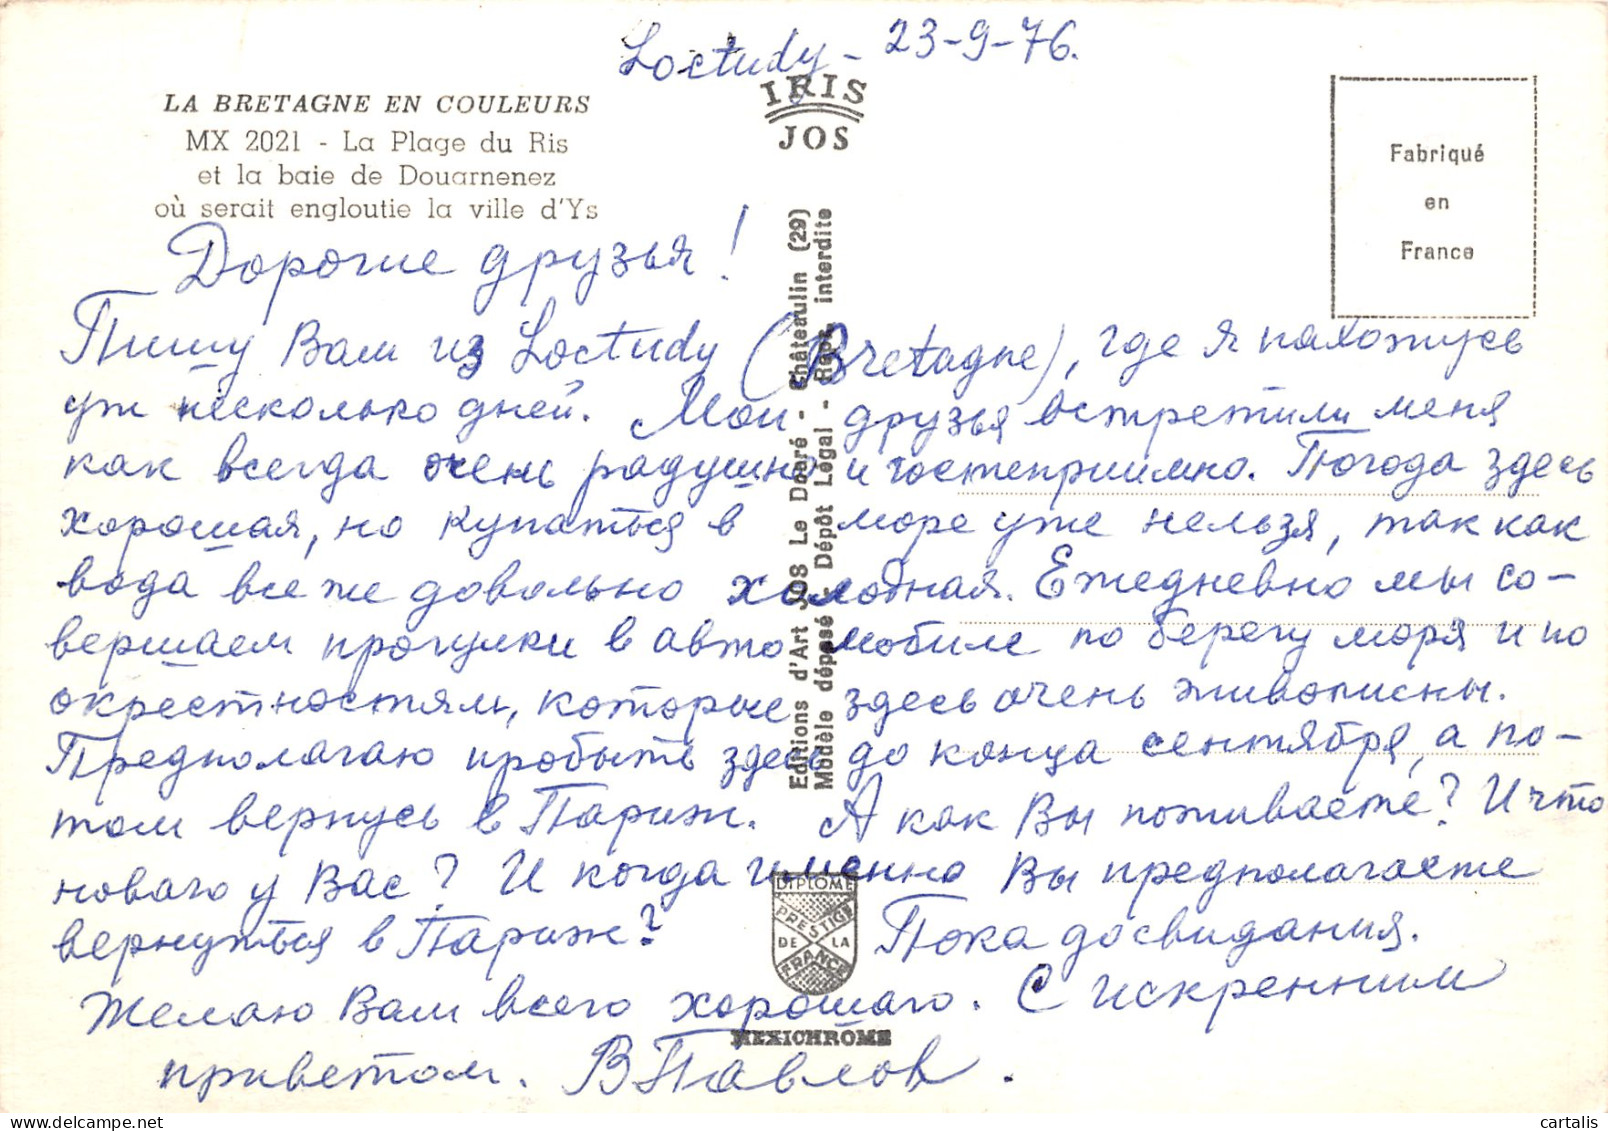 Loctudy - 23-9-76.
LA BRETAGNE EN COULEURS
MX 2021 - La Plage du Ris
et la baie de Douarnenez
où serait engloutie la ville d'Ys
IRIS
JOS
Fabriqué
en
France
Editions d'Art JOS Le Doaré - Châteaulin (29)
Modèle déposé - Dépôt Légal - Repr. interdite
Дорогие друзья!
Пишу Вам из Loctudy (Bretagne), где я нахожусь
уж несколько дней. Мои друзья встретили меня
как всегда очень радушно и гостеприимно. Погода здесь
хорошая, но купаться в море уже нельзя, так как
вода все же довольно холодная. Ежедневно мы со-
вершаем прогулки в автомобиле по берегу моря и по
окрестностям, которые здесь очень живописны.
Предполагаю пробыть здесь до конца сентября, а по-
том вернусь в Париж. А как Вы поживаете? И что
новаго у Вас? И когда именно Вы предполагаете
вернуться в Париж? Пока досвидания.
Желаю Вам всего хорошаго. С искренним
приветом. В Павлов.
DIPLOME
PRESTIGE
DE LA
FRANCE
MEXICHROME
cartalis.com